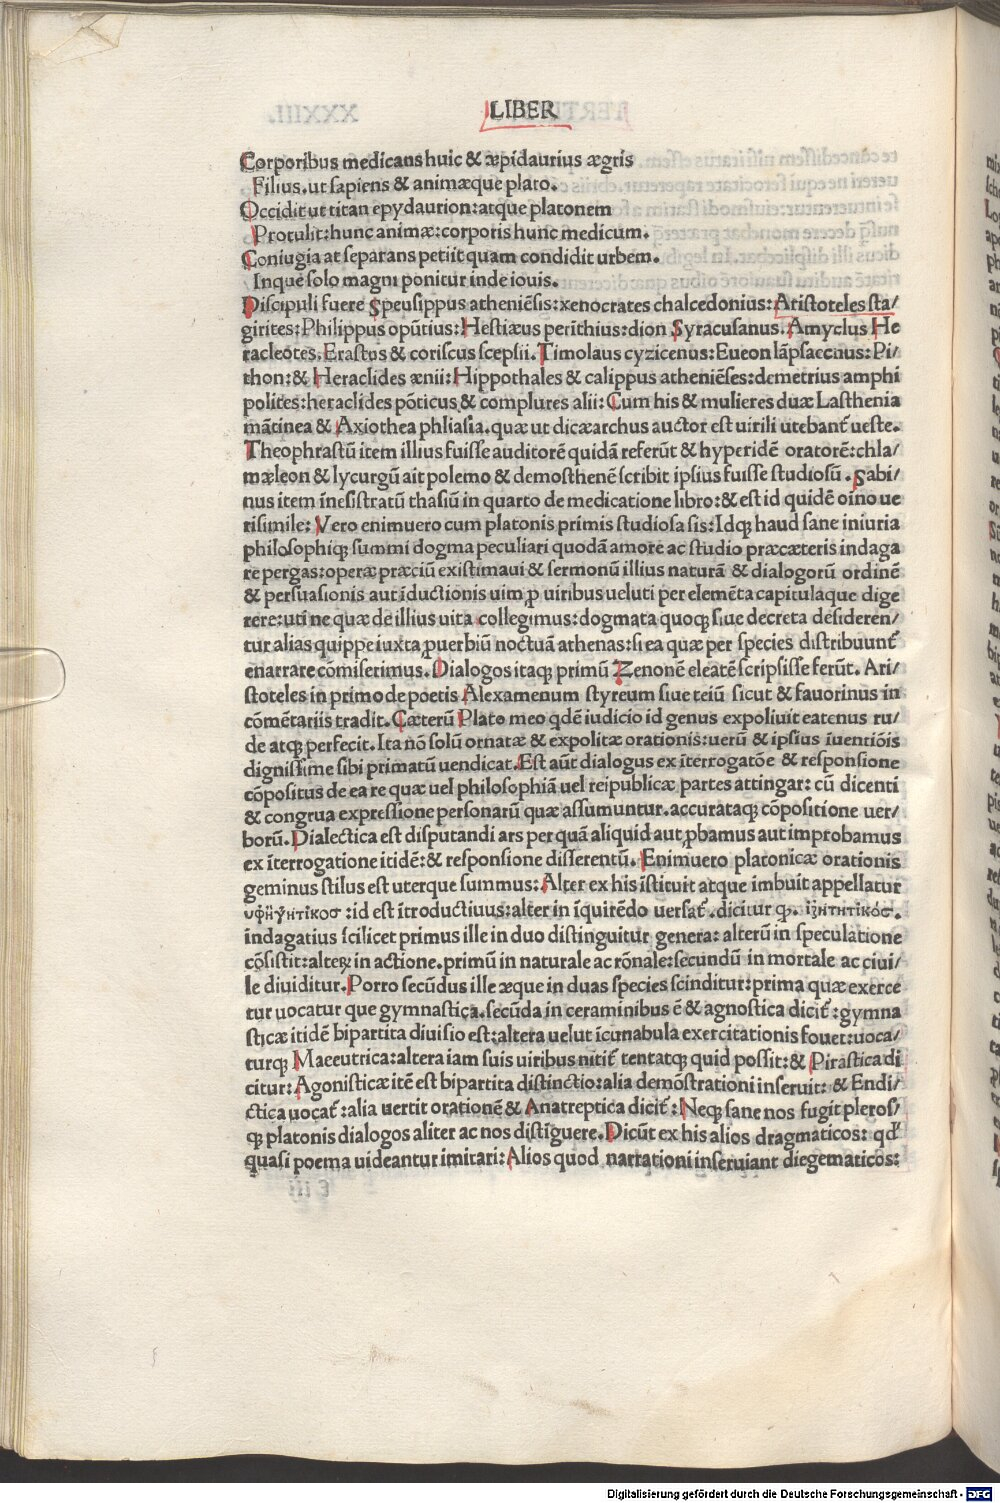 LIBER
Corporibus medicans huic & æpidaurius ægris
Filius.ut sapiens & animæque plato.
Occidit ut titan epydaurion:atque platonem
Protulit:hunc animæ:corporis hunc medicum.
Coniugia at separans petiit quam condidit urbem.
Inque solo magni ponitur inde iouis.
Discipuli fuere Speusippus atheniẽsis:xenocrates chalcedonius:Aristoteles sta/
girites:Philippus opũtius:Hestiæus perithius:dion Syracusanus.Amyclus He
racleotes.Erastus & coriscus scepsii.Timolaus cyzicenus:Eueon lãpsacenus:Pi/
thon:& Heraclides ænii:Hippothales & calippus atheniẽses:demetrius amphi
polites:heraclides põticus & complures alii:Cum his & mulieres duæ Lasthenia
mãtinea & Axiothea phliasia.quæ ut dicæarchus auctor est uirili utebant̃ ueste.
Theophrastũ item illius fuisse auditorẽ quidã referũt & hyperidẽ oratorẽ:chla/
mæleon & lycurgũ ait polemo & demosthenẽ scribit ipsius fuisse studiosũ.Sabi/
nus item inesistratũ thasiũ in quarto de medicatione libro:& est id quidẽ oĩno ue
risimile:Vero enimuero cum platonis primis studiosa sis:Idq; haud sane iniuria
philosophiq; summi dogma peculiari quodã amore ac studio præcæteris indaga
re pergas:operæ præciũ existimaui & sermonũ illius naturã & dialogorũ ordinẽ
& persuasionis aut ĩductionis uim ꝓ uiribus ueluti per elemẽta capitulaque dige
rere:uti ne quæ de illius uita collegimus:dogmata quoq; siue decreta desideren/
tur alias quippe iuxta ꝓuerbiũ noctuã athenas:si ea quæ per species distribuunt̃
enarrare cõmiserimus.Dialogos itaq; primũ Zenonẽ eleatẽ scripsisse ferũt.Ari/
stoteles in primo de poetis Alexamenum styreum siue teiũ sicut & fauorinus in
cõmẽtariis tradit.Cæterũ Plato meo qdẽ iudicio id genus expoliuit eatenus ru/
de atq; perfecit.Ita nõ solũ ornatæ & expolitæ orationis:uerũ & ipsius ĩuentiõis
dignissime sibi primatũ uendicat.Est aũt dialogus ex ĩterrogatõe & responsione
cõpositus de ea re quæ uel philosophiã uel reipublicæ partes attingar:cũ dicenti
& congrua expressione personarũ quæ assumuntur.accurataq; cõpositione uer/
borũ.Dialectica est disputandi ars per quã aliquid aut ꝓbamus aut improbamus
ex ĩterrogatione itidẽ:& responsione disserentũ.Enimuero platonicæ orationis
geminus stilus est uterque summus:Alter ex his ĩstituit atque imbuit appellatur
υφηγητικοσ:id est ĩtroductiuus:alter in ĩquirẽdo uersat̃.dicitur q;. ιζητητικόσ.
indagatius scilicet primus ille in duo distinguitur genera:alterũ in speculatione
cõsistit:alteꝝ in actione.primũ in naturale ac rõnale:secundũ in mortale ac ciui/
le diuiditur.Porro secũdus ille æque in duas species scinditur:prima quæ exerce
tur uocatur que gymnastica.secũda in ceraminibus ẽ & agnostica dicit̃:gymna
sticæ itidẽ bipartita diuisio est:altera uelut ĩcunabula exercitationis fouet:uoca/
turq; Maeeutrica:altera iam suis uiribus nitit̃ tentatq; quid possit:& Pirastica di
citur:Agonisticæ itẽ est bipartita distinctio:alia demõstrationi inseruit:& Endi/
ctica uocat̃:alia uertit orationẽ & Anatreptica dicit̃:Neq; sane nos fugit pleros/
q; platonis dialogos aliter ac nos distĩguere.Dicũt ex his alios dragmaticos:qd'
quasi poema uideantur imitari:Alios quod narrationi inseruiant diegematicos:
Digitalisierung gefördert durch die Deutsche Forschungsgemeinschaft - DFG